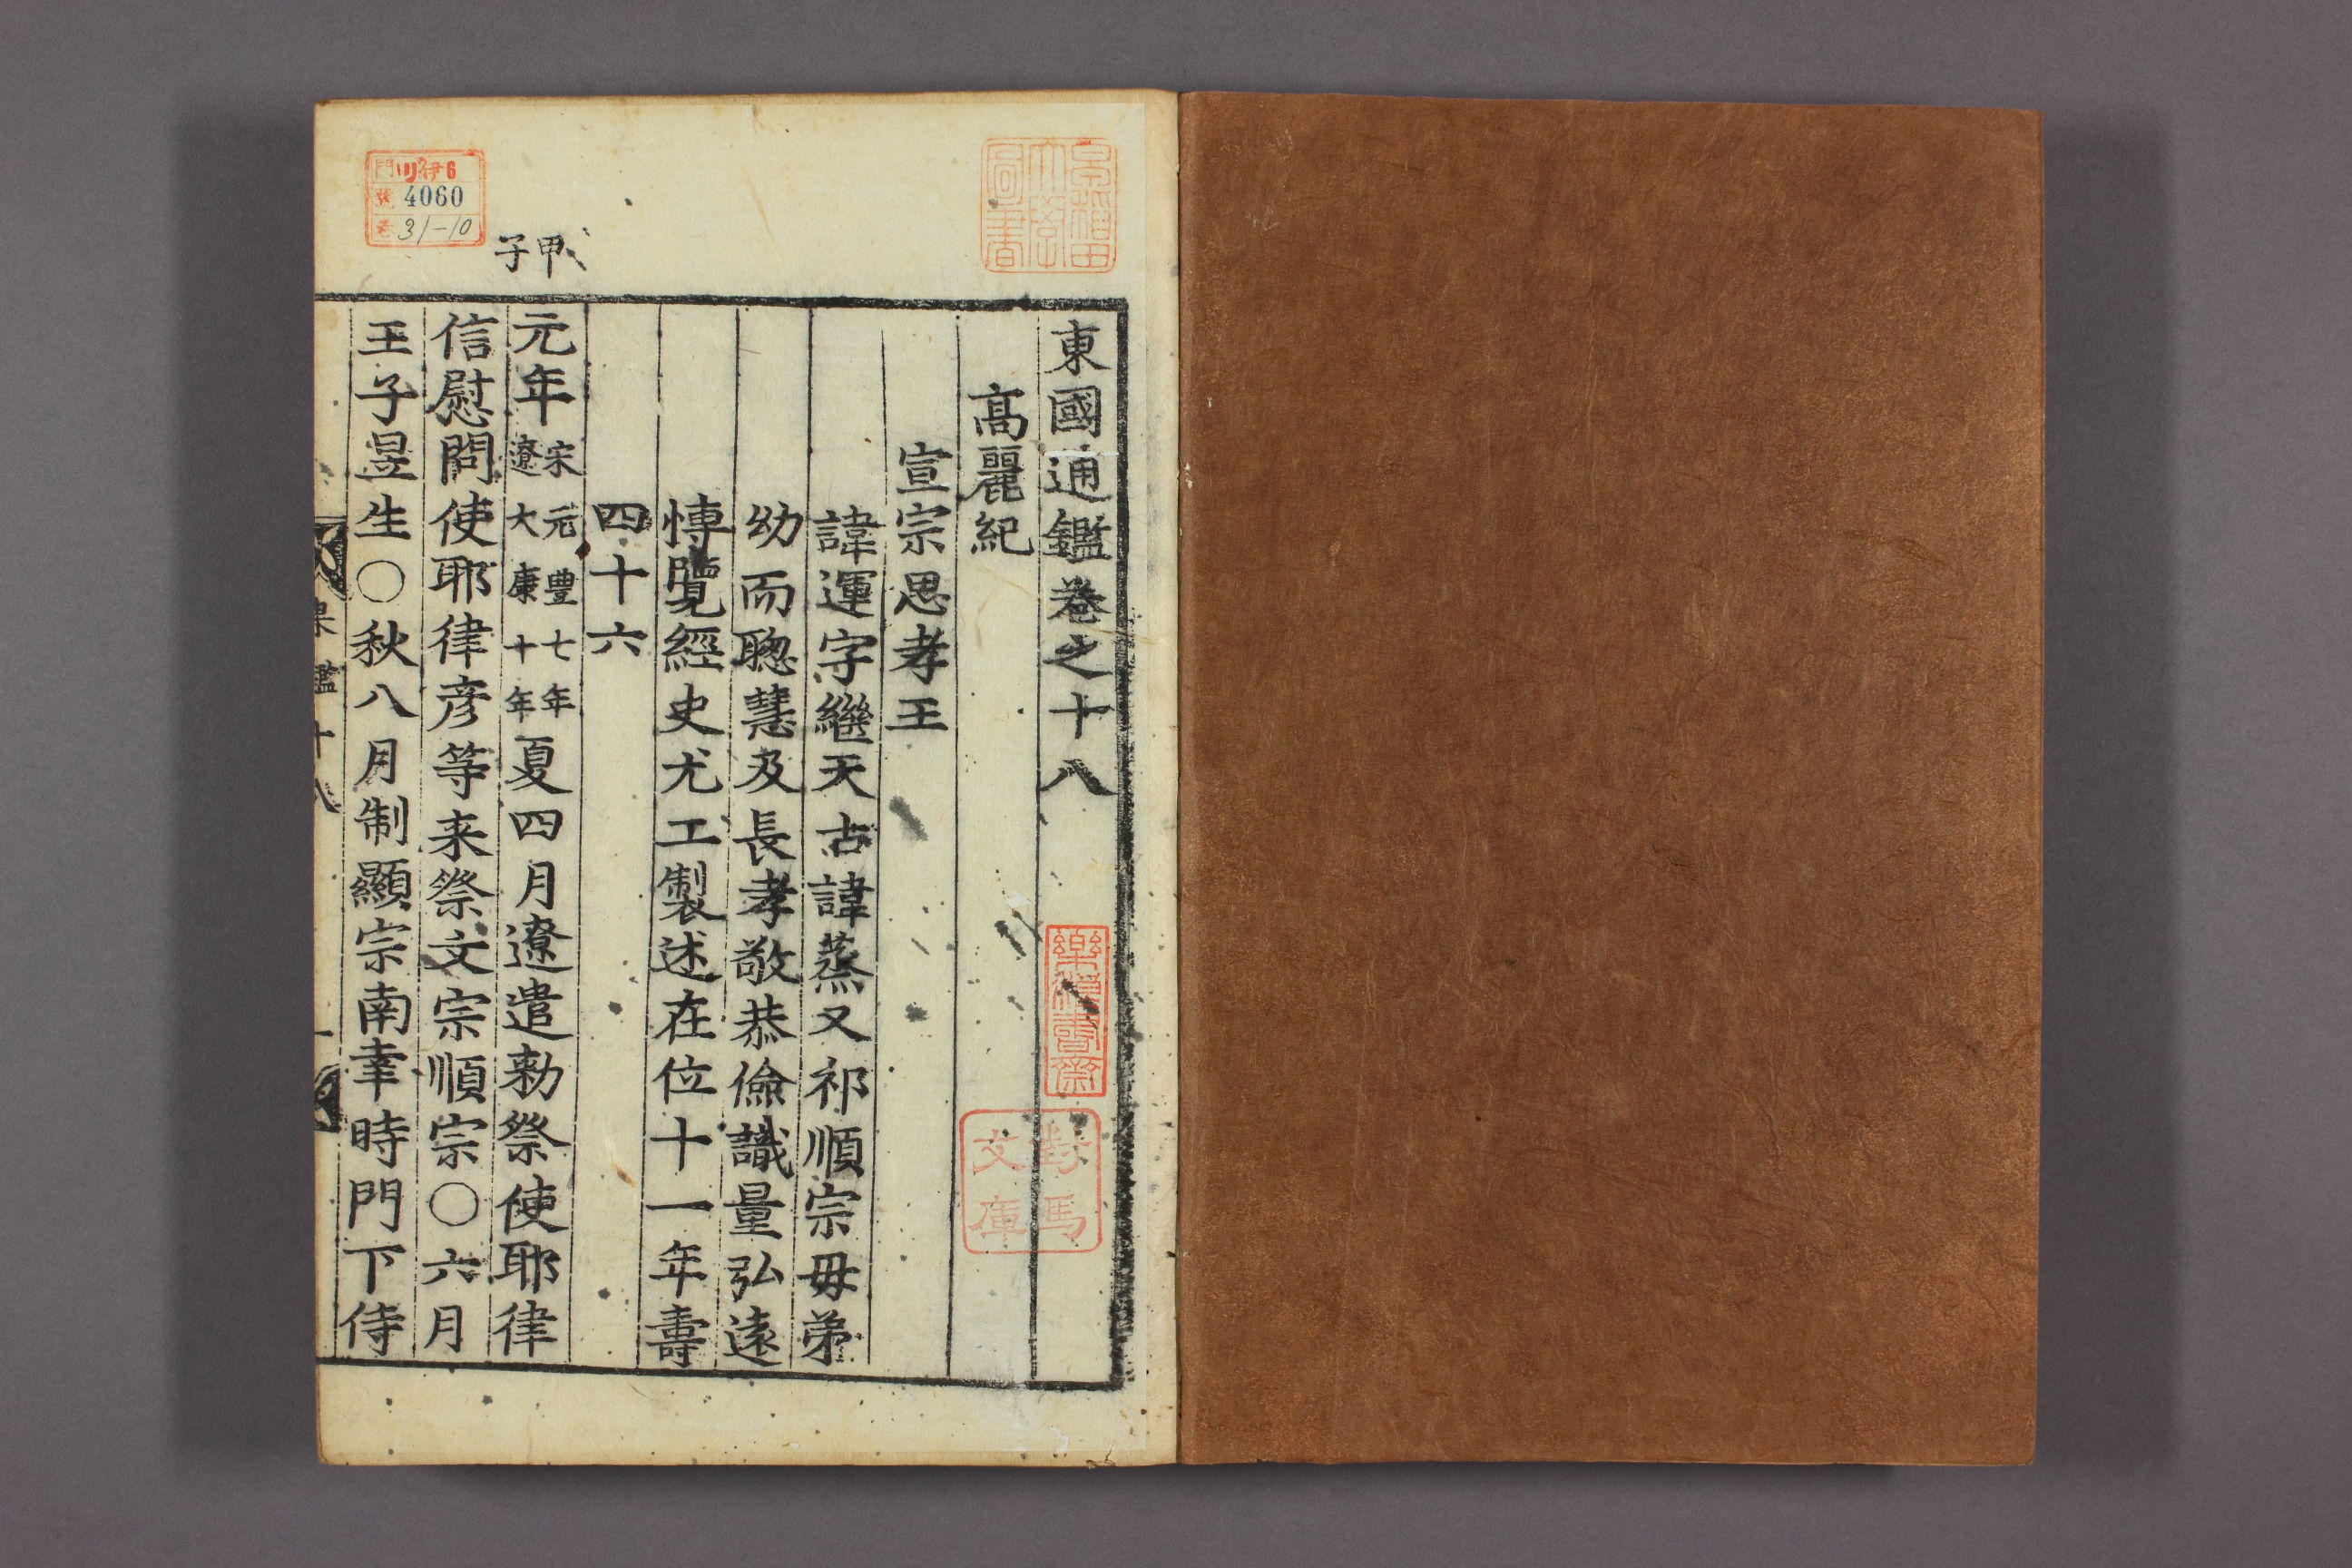 東國通鑑卷之十八
高麗紀
宣宗思孝王
諱運字繼天古諱蒸又祁順宗毋弟
幼而聰慧及長孝敬恭儉識量弘遠
愽覽經史尤工製述在位十一年壽
四十六
甲子
元年宋元豊七年遼大康十年夏四月遼遣勑祭使耶律
信慰問使耶律彦等来祭文宗順宗○六月
王子昱生○秋八月制顯宗南幸時門下侍
鑑十八
一
對馬文庫
門 リ 伊6
號 4060
卷 31-10